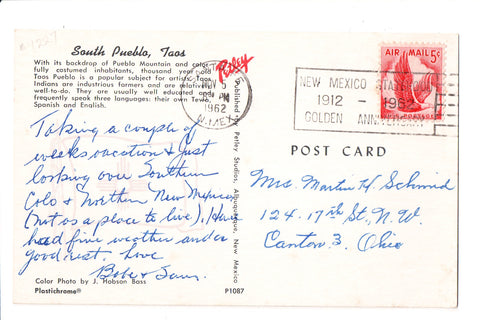 n 1227
South Pueblo, Taos
With its backdrop of Pueblo Mountain and color-
fully costumed inhabitants, thousand year old
Taos Pueblo is a popular subject for artists. Taos
Indians are industrious farmers and are relatively
well-to-do. They are usually well educated and
frequently speak three languages: their own Tewa,
Spanish and English.
Taking a couple of
weeks vacation & just
looking over Southern
Colo & Northern New Mexico
(not as a place to live). Have
had fine weather and a
good rest. Love
Babe & Sam.
Color Photo by J. Hobson Bass
Plastichrome®
Petley
Published by Petley Studios, Albuquerque, New Mexico
P1087
NOV 5
PM
1962
N. MEX.
NEW MEXICO STATEHOOD
1912 - 1962
GOLDEN ANNIVERSARY
AIR MAIL 5¢
POST CARD
Mrs. Martin H. Schmid
124-17th St. N.W.
Canton 3, Ohio